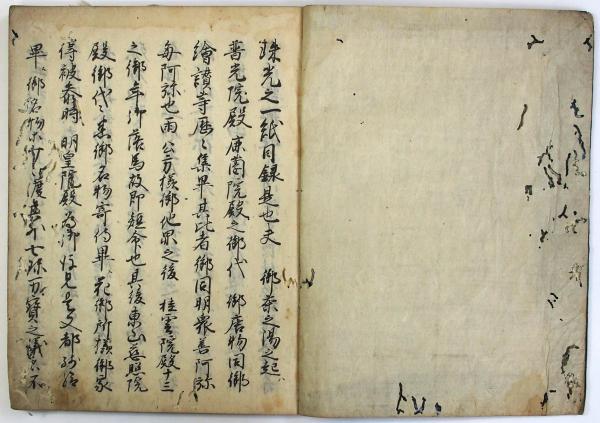 珠光之一紙目録是也夫 御茶之湯之起
普光院殿 鹿薗院殿之御代 御唐物同御
繪讃等歴々集畢其比者御同朋衆善阿弥
毎阿弥也両公方様御他界之後 桂雲院殿十三
之御年御落馬故即短命也其後東山慈照院
殿御代々集御名物寄得畢 花御所様御家
得被参時 明皇院殿為御
畢 御名物 渡 七珍万寶之儀 不